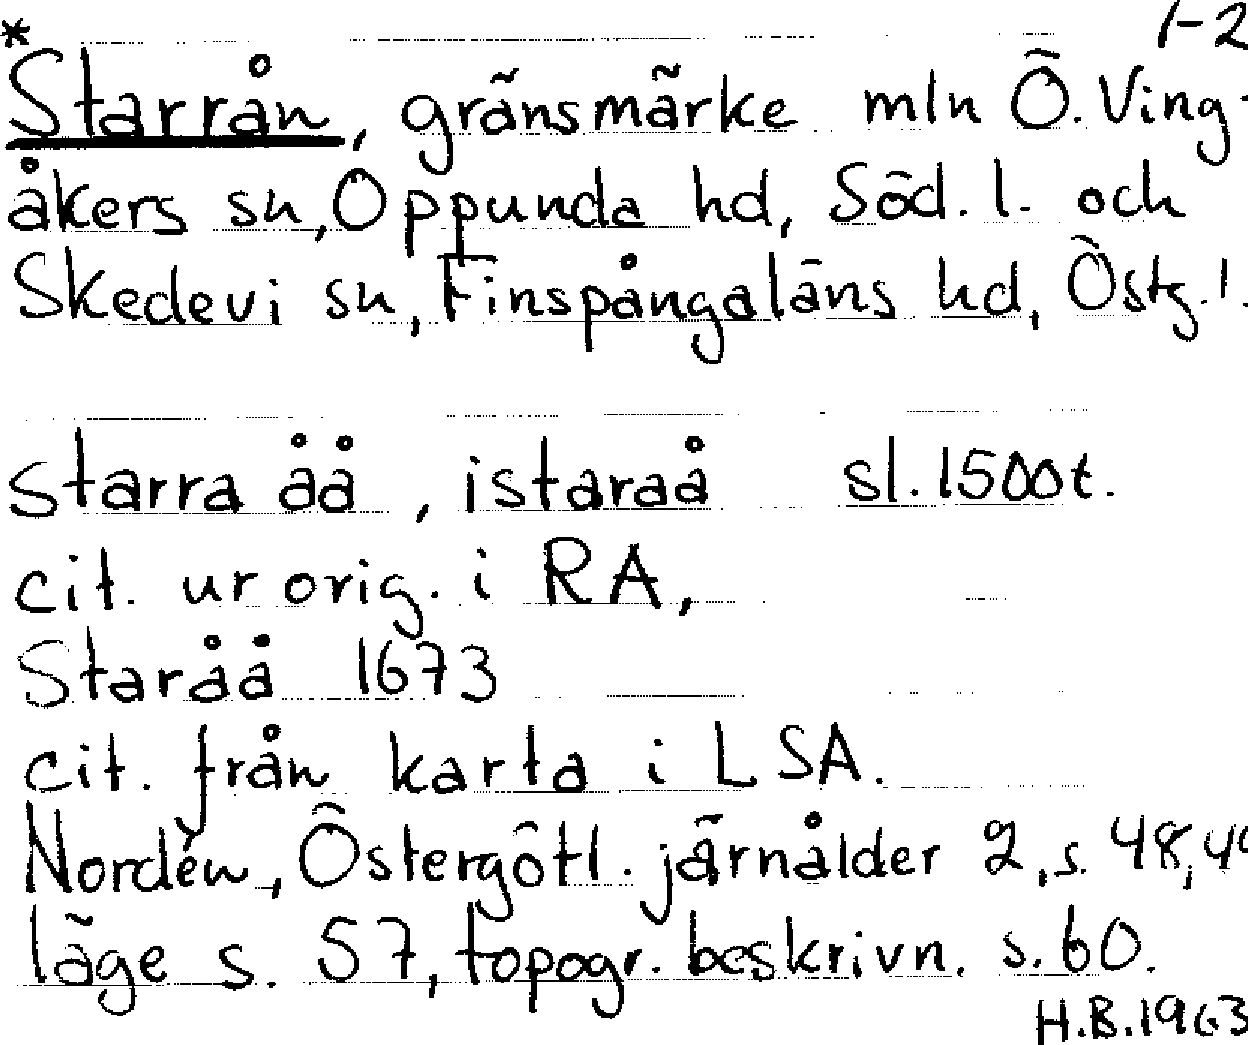 * 1-2
Starrån, gränsmärke mln Ö. Ving-
åkers sn, Oppunda hd, Söd. l. och
Skedevi sn, Finspångaläns hd, Östg. l.
starra åå, istaraå sl. 1500t.
cit. ur orig. i RA,
Staråå 1673
cit. från karta i LSA.
Nordén, Östergötl. järnålder 2, s. 48,
läge s. 57, topogr. beskrivn. s. 60.
H.B. 1963